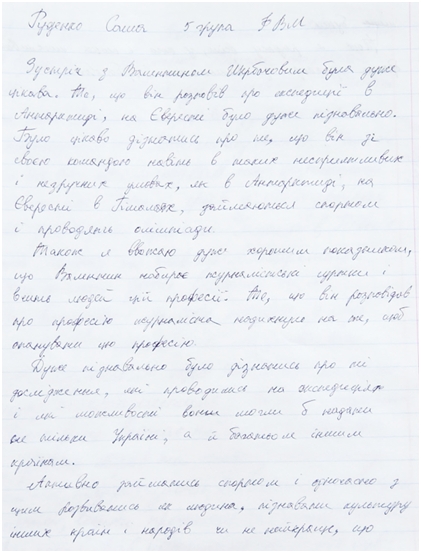 Руденко Саша 5 група ФВМ
Зустріч з Валентином Щербачовим була дуже
цікава. Те, що він розповів про експедиції в
Антарктиді, на Еверест було дуже пізнавально.
Було цікаво дізнатись про те, що він зі
своєю командою навіть в таких несприятливих
і незручних умовах, як в Антарктиді, на
Евересті в Гімалаях, займаються спортом
і проводять олімпіади.
Також я вважаю дуже хорошим показником,
що Валентин набирає журналістські групи і
вчить людей цій професії. Те, що він розповідав
про професію журналіста надихнуло на те, щоб
опанувати цю професію.
Дуже пізнавально було дізнатись про ті
дослідження, які проводились на експедиціях
і які можливості вони могли б надати
не тільки Україні, а й багатьом іншим
країнам.
Активно займатись спортом і одночасно з
цим розвиватись як людина, пізнавати культуру
інших країн і народів чи не найкраще, що